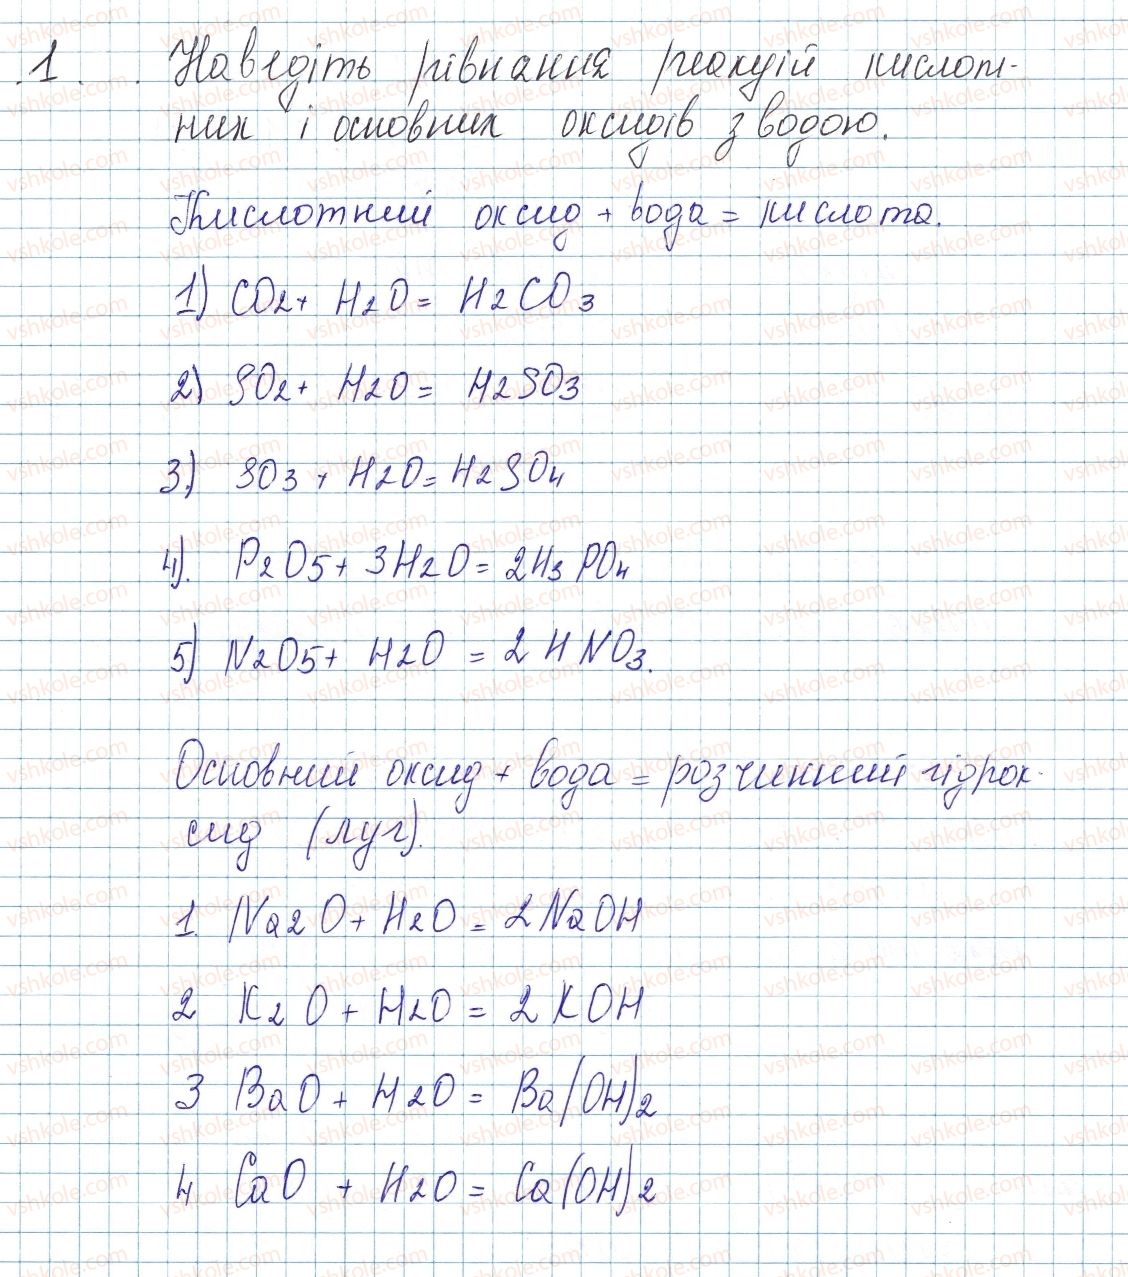 1. Наведіть рівняння реакцій кислот-
них і основних оксидів з водою.
Кислотний оксид + вода = кислота.
1) CO2 + H2O = H2CO3
2) SO2 + H2O = H2SO3
3) SO3 + H2O = H2SO4
4). P2O5 + 3H2O = 2H3PO4
5) N2O5 + H2O = 2HNO3.
Основний оксид + вода = розчинний гідрок-
сид (луг).
1. Na2O + H2O = 2NaOH
2 K2O + H2O = 2KOH
3 BaO + H2O = Ba(OH)2
4 CaO + H2O = Ca(OH)2
vshkole.com